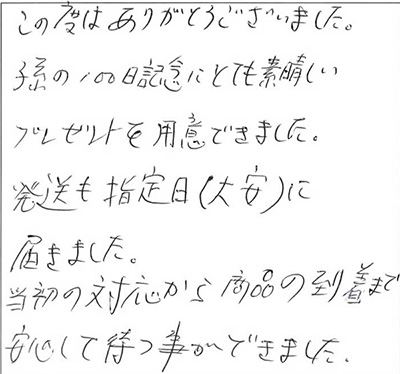 この度はありがとうございました。
孫の100日記念にとても素晴しい
プレゼントを用意できました。
発送も指定日(大安)に
届きました。
当初の対応から商品の到着まで
安心して待つ事ができました。